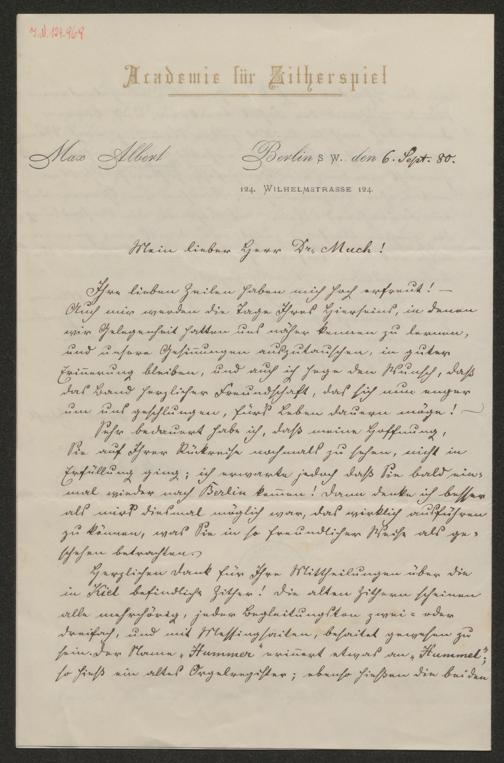 I.N. 121.969
Academie für Zitherspiel
Max Albert
Berlin S.W. den 6. Sept. 80.
124. WILHELMSTRASSE 124.
Mein lieber Herr Dr. Much!
Ihre lieben Zeilen haben mich hoch erfreut! —
Auch mir werden die Tage Ihres Hierseins, in denen
wir Gelegenheit hatten uns näher kennen zu lernen,
und unsere Gesinnungen auszutauschen, in guter
Erinnerung bleiben, und auch ich hege den Wunsch, daß
das Band herzlicher Freundschaft, das sich nun enger
um uns geschlungen, fürs Leben dauern möge! —
Sehr bedauert habe ich, daß meine Hoffnung,
Sie auf Ihrer Rückreise nochmals zu sehen, nicht in
Erfüllung ging; ich erwarte jedoch daß Sie bald ein-
mal wieder nach Berlin kommen! Dann denke ich besser
als mir's diesmal möglich war, das wirklich ausführen
zu können, was Sie in so freundlicher Weise als ge-
schehen betrachten.
Herzlichen Dank für Ihre Mittheilungen über die
in Kiel befindliche Zither! Die alten Zithern scheinen
alle mehrchörig, jeder Begleitungston zwei- oder
dreifach, und mit Messingsaiten, besaitet gewesen zu
sein. Der Name „Hummer" erinnert etwas an „Hummel";
so hieß ein altes Orgelregister; ebenso hießen die beiden